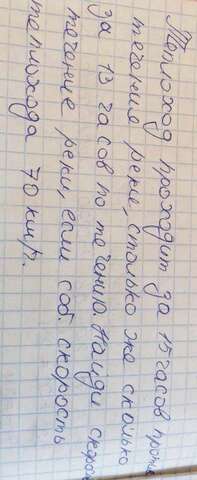 Теплоход проходит за 15 часов против
течения реки, столько же сколько
за 13 часов по течению. Найди скорос
течение реки, если соб. скорость
теплохода 70 км/ч.